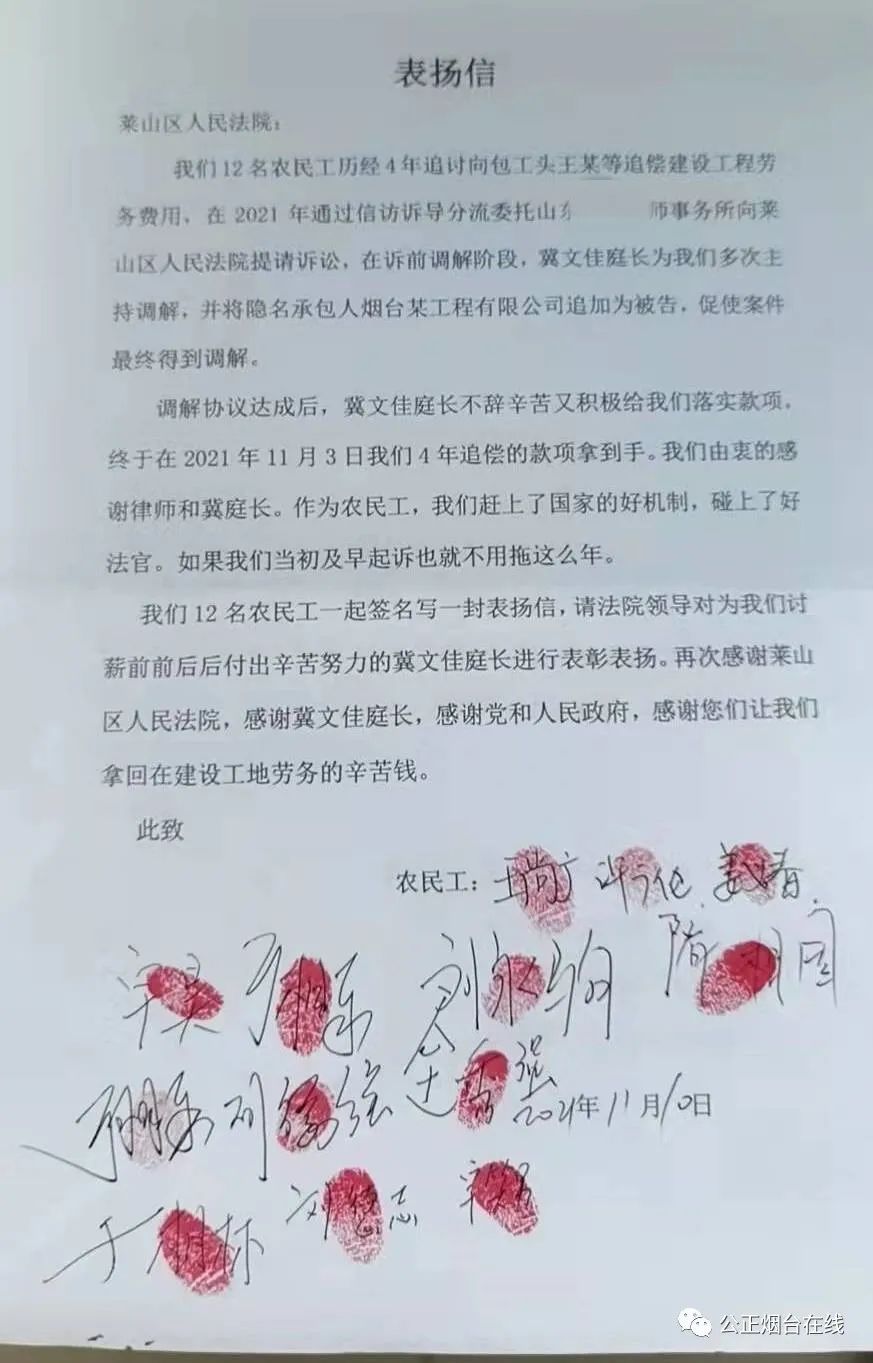 表扬信
莱山区人民法院：
我们12名农民工历经4年追讨向包工头王某等追偿建设工程劳
务费用，在 2021 年通过信访诉导分流委托山东 师事务所向莱
山区人民法院提请诉讼，在诉前调解阶段，冀文佳庭长为我们多次主
持调解，并将隐名承包人烟台某工程有限公司追加为被告，促使案件
最终得到调解。
调解协议达成后，冀文佳庭长不辞辛苦又积极给我们落实款项，
终于在 2021 年 11 月 3 日我们 4 年追偿的款项拿到手。我们由衷的感
谢律师和冀庭长。作为农民工，我们赶上了国家的好机制，碰上了好
法官。如果我们当初及早起诉也就不用拖这么年。
我们 12 名农民工一起签名写一封表扬信，请法院领导对为我们讨
薪前前后后付出辛苦努力的冀文佳庭长进行表彰表扬。再次感谢莱山
区人民法院，感谢冀文佳庭长，感谢党和人民政府，感谢您们让我们
拿回在建设工地劳务的辛苦钱。
此致
农民工：
2021年11月10日
刘德志
公正烟台在线